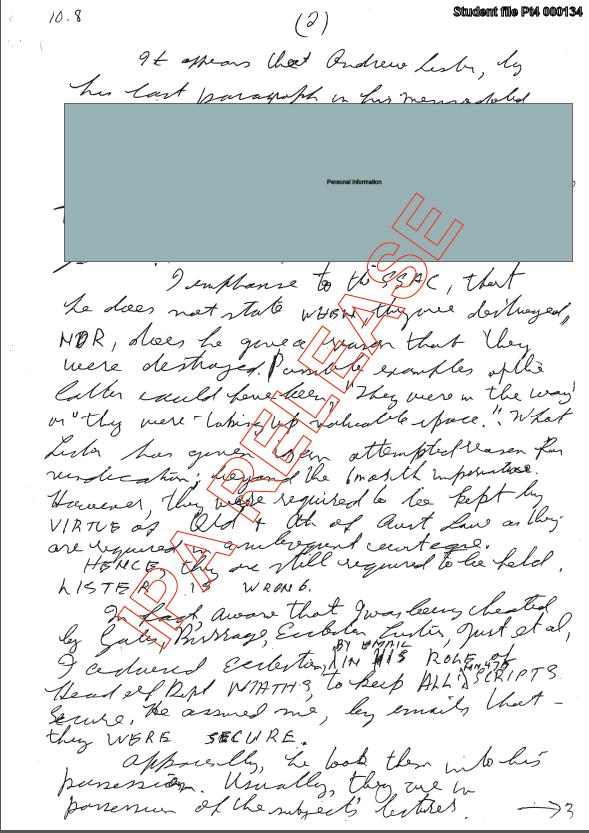 Student file Pt4 000134
10.8
(2)
It appears that Andrew Lister, by
his last paragraph in his memo dated
Personal Information
I emphasise to the SSAC, that
he does not state WHEN, they were destroyed,
NOR, does he give a reason that they
were destroyed. Possible examples of the
latter could have been, "They were in the way"
or "they were taking up valuable space.". What
Lister has given is an attempted reason for
vindication; beyond the 6 month
However, they were required to be kept by
VIRTUE of Qld & Cth of Aust Law as they
are required in a subsequent court case.
HENCE, they are still required to be held.
LISTER IS WRONG.
In fact, aware that I was being cheated
by Gates, Burrage, Eccleston, Lister, Just et al,
BY EMAIL
I Eccleston, IN HIS ROLE of
Head of Dept MATHS, to keep ALL SCRIPTS
secure. He assured me, by emails that -
they WERE SECURE.
Apparently, he took them into his
possession. Usually, they are in
possession of the subject's lecturer.
→ 3
IPA RELEASE